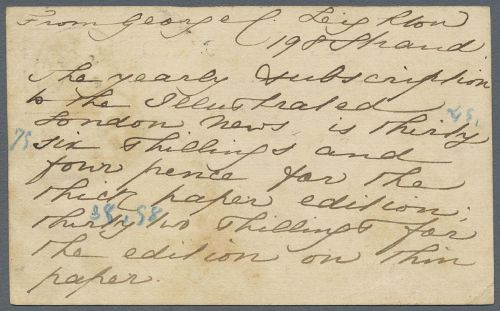 From George C. Leighton
198 Strand
The yearly Subscription
to the Illustrated
London News is thirty
six shillings and
four pence for the
thick paper edition;
thirty two shillings for
the edition on thin
paper.
75
45.
39,58